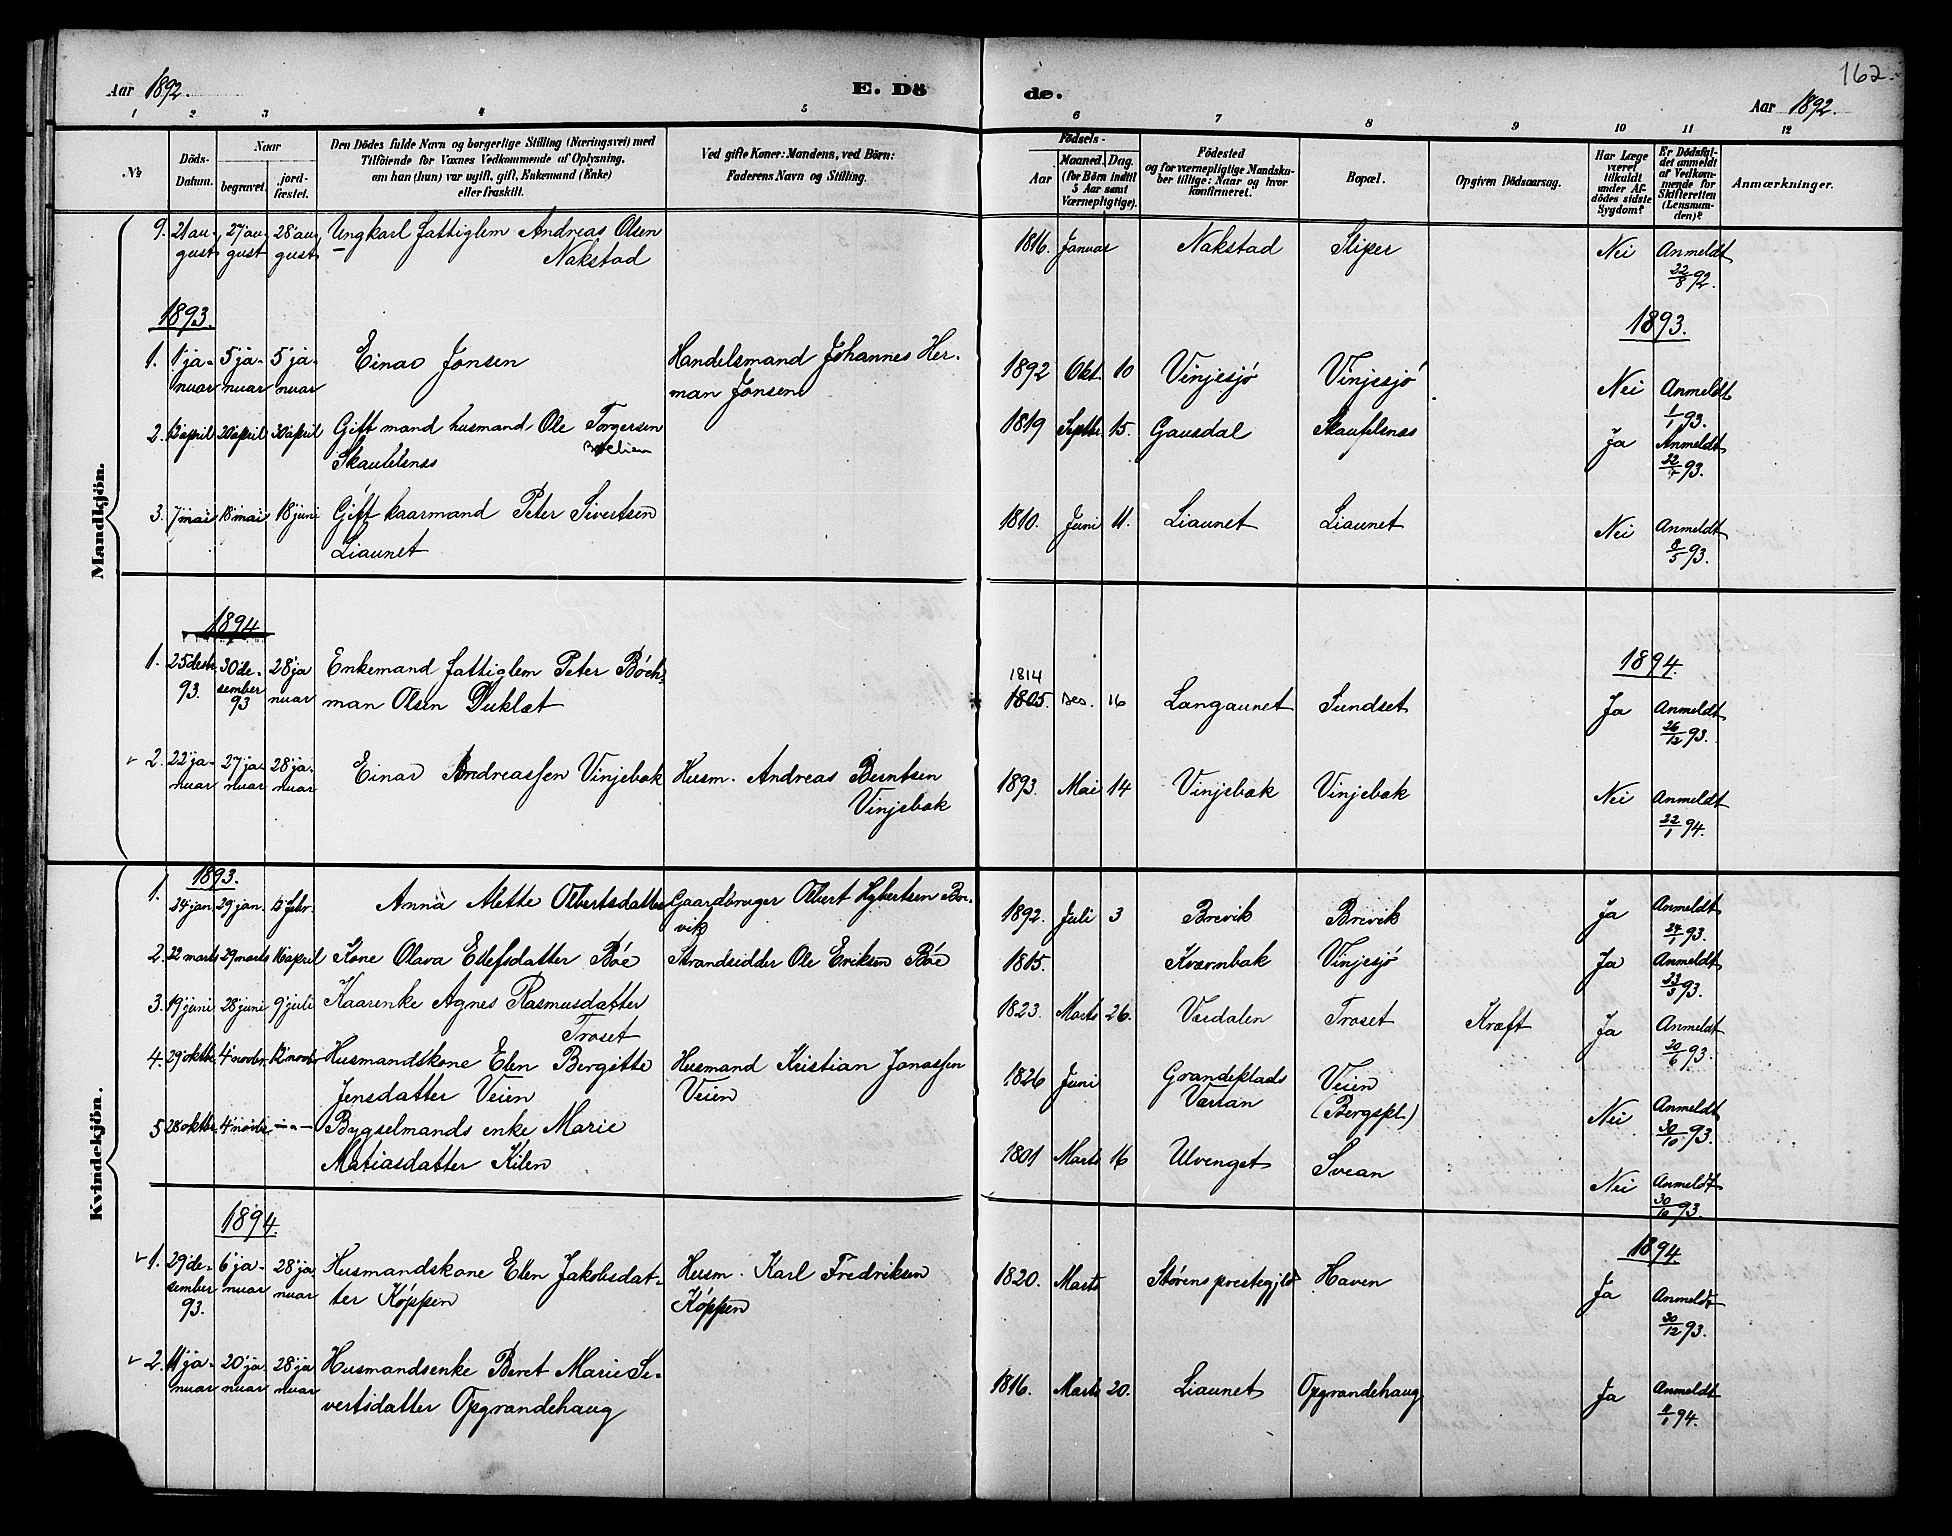 162.
Aar 1892. E. Dö de. Aar 1892.
1 2 3 4 5 6 7 8 9 10 11 12
№ Döds-Datum. Naar begravet. jord-fæstet. Den Dödes fulde Navn og borgerlige Stilling (Næringsvei) med Tilföiende for Voxnes Vedkommende af Oplysning, om han (hun) var ugift, gift, Enkemand (Enke) eller fraskilt. Ved gifte Koner: Mandens, ved Börn: Faderens Navn og Stilling. Födsels- Aar Maaned. Dag. (for Börn indtil 5 Aar samt Værnepligtige). Födested og for værnepligtige Mandskaber tillige: Naar og hvor konfirmeret. Bopæl. Opgiven Dödsaarsag. Har Læge været tilkaldt under Afdödes sidste Sygdom? Er Dödsfaldet anmeldt af Vedkommende for Skifteretten (Lensmanden)? Anmærkninger.
Mandkjön.
9. 21 august 27 august 28 august Ungkarl fattiglem Andreas Olsen Nakstad 1816. Januar Nakstad Sliper Nei Anmeldt 22/8 92.
1893. 1893.
1. 1 januar 5 januar 5 januar Einar Jonsen Handelsmand Johannes Herman Jonsen 1892 Okt. 10 Vinjesjö Vinjesjö Nei Anmeldt 1/1 93.
2. 12 april 20 april 30 april Gift mand husmand Ole Torgersen Skaufelenæs 1819 Septbr 15. Gausdal Skaufelsnæs Ja Anmeldt 22/4 93.
3. 7 mai 18 mai 18 juni Gift kaarmand Peter Sivertsen Liaunet 1810. Juni 11. Liaunet Liaunet Nei Anmeldt 8/5 93.
1894 1894.
1. 25 desbr 93. 30 desember 93 28 januar Enkemand fattiglem Peter Böckman Olsen Duklæt 1814 1805. Des. 16 Langaunet Sundset Ja Anmeldt 26/12 93.
2. 22 januar 27 januar 28 januar Einar Andreassen Vinjebak Husm. Andreas Berntsen Vinjebak 1893. Mai 14 Vinjebak Vinjebak Nei Anmeldt 22/1 94.
Kvindekjön.
1893.
1. 24 jan 29 jan. 12 febr. Anna Mette Olbertsdatter Gaardbruger Olbert Hybertsen Brevik 1892. Juli 3 Brevik Brevik Ja Anmeldt 24/1 93.
2. 22 marts 29 marts 16 april Kone Olava Ellefsdatter Böe Strandsidder Ole Eriksen Böe 1815. Kværnbak Vinjesjö Ja Anmeldt 23/3 93.
3. 19 juni 28 juni 9 juli Kaarenke Agnes Rasmusdatter Troset 1823. Marts 26. Værdalen Troset Kræft Ja Anmeldt 20/6 93.
4. 29 oktbr. 4 novbr. 12 novbr Husmandskone Elen Bergitte Jensdatter Veien Husmand Kristian Jonassen Veien 1826 Juni Grandeplads Værran Veien (Bergspl) Nei Anmeldt 30/10 93.
5 28 oktbr. 4 novbr. —"— Bygselmands enke Marie Matiasdatter Kilen 1801 Marts 16 Ulvenget Svean Nei Anmeldt 30/10 93.
1894. 1894.
1. 29 desember 93. 6 januar 28 januar Husmandskone Elen Jakobsdatter Köppen Husm. Karl Fredriksen Köppen 1820. Marts Störens prestegjld Haven Ja Anmeldt 30/12 93.
2. 11 januar 20 januar 28 januar Husmandsenke Beret Marie Sivertsdatter Opgrandehaug 1816. Marts 20. Liaunet Opgrandehaug Ja Anmeldt 94.